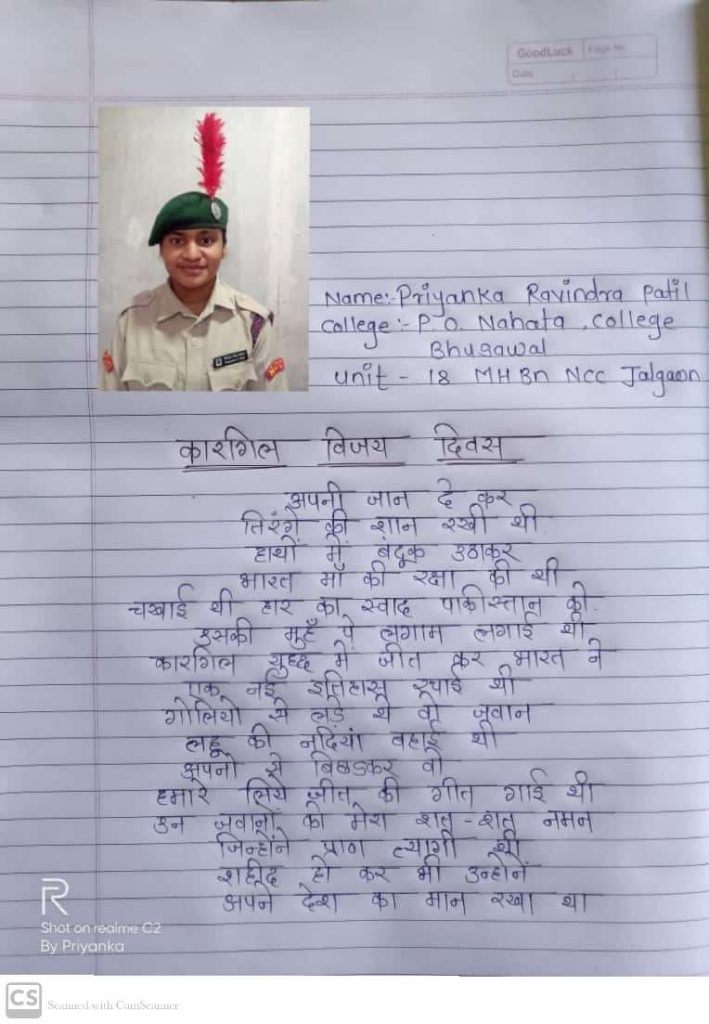 GoodLuck Page No.
Date
Name:- Priyanka Ravindra Patil
College:- P. O. Nahata, College
Bhusawal
Unit - 18 MH Bn NCC Jalgaon
कारगिल विजय दिवस
अपनी जान दे कर
तिरंगे की शान रखी थी
हाथों में बंदूक उठाकर
भारत माँ की रक्षा की थी
चखाई थी हार का स्वाद पाकीस्तान को
उसकी मुहँ पे लगाम लगाई थी
कारगिल युध्द में जीत कर भारत ने
एक नई इतिहास रचाई थी
गोलियो से लड़े थे वो जवान
लहू की नदियां बहाई थी
अपनो से बिछडकर वो
हमारे लिये जीत की गीत गाई थी
उन जवानों को मेरा शत-शत नमन
जिन्होंने प्राण त्यागी थी
शहीद हो कर भी उन्होंने
अपने देश का मान रखा था
R
Shot on realme C2
By Priyanka
CS Scanned with CamScanner